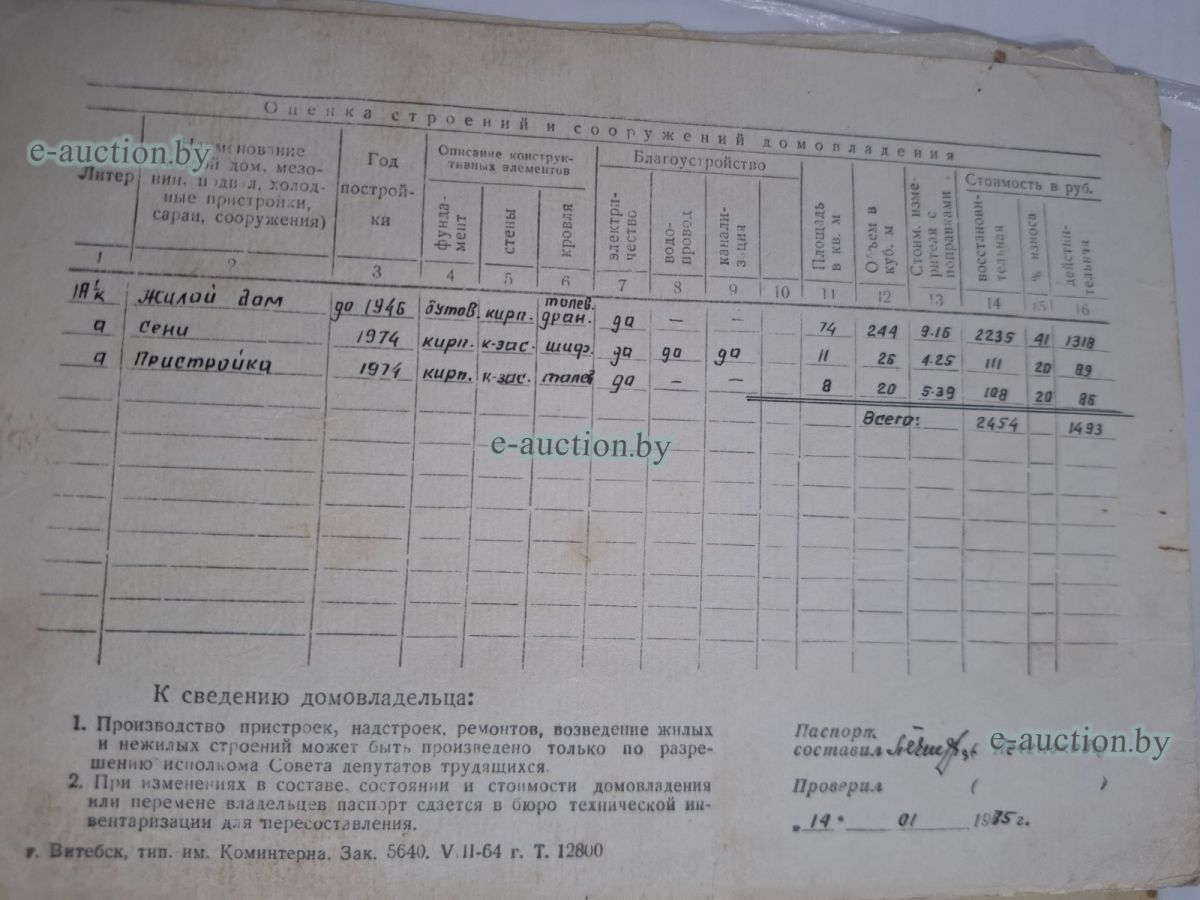 Оценка строений и сооружений домовладения
Литер
дом, мезо-
нин, подвал, холод-
ные пристройки,
сараи, сооружения)
Год
постройки
Описание конструк-
тивных элементов
фунда-
мент
стены
кровля
Благоустройство
электри-
чество
водо-
провод
канали-
зация
Площадь
в кв. м
Объем в
куб. м
Стоим. изме-
рителя с
поправками
Стоимость в руб.
восстанови-
тельная
% износа
действи-
тельная
1 2 3 4 5 6 7 8 9 10 11 12 13 14 15 16
жилой дом до 1946 бутов. кирп. толев. дран. да — — 74 244 9.16 2235 41 1318
а сени 1974 кирп. к-зас. шиф. да да да 11 26 4.25 111 20 89
а Пристройка 1974 кирп. к-зас. толев да — — 8 20 5.39 108 20 86
Всего: 2454 1493
К сведению домовладельца:
1. Производство пристроек, надстроек, ремонтов, возведение жилых
и нежилых строений может быть произведено только по разре-
шению исполкома Совета депутатов трудящихся.
2. При изменениях в составе, состоянии и стоимости домовладения
или перемене владельцев паспорт сдается в бюро технической ин-
вентаризации для пересоставления.
Паспорт
составил
Проверил ( )
„14" 01 1975 г.
г. Витебск, тип. им. Коминтерна. Зак. 5640. VII-64 г. Т. 12800
e-auction.by
e-auction.by
e-auction.by